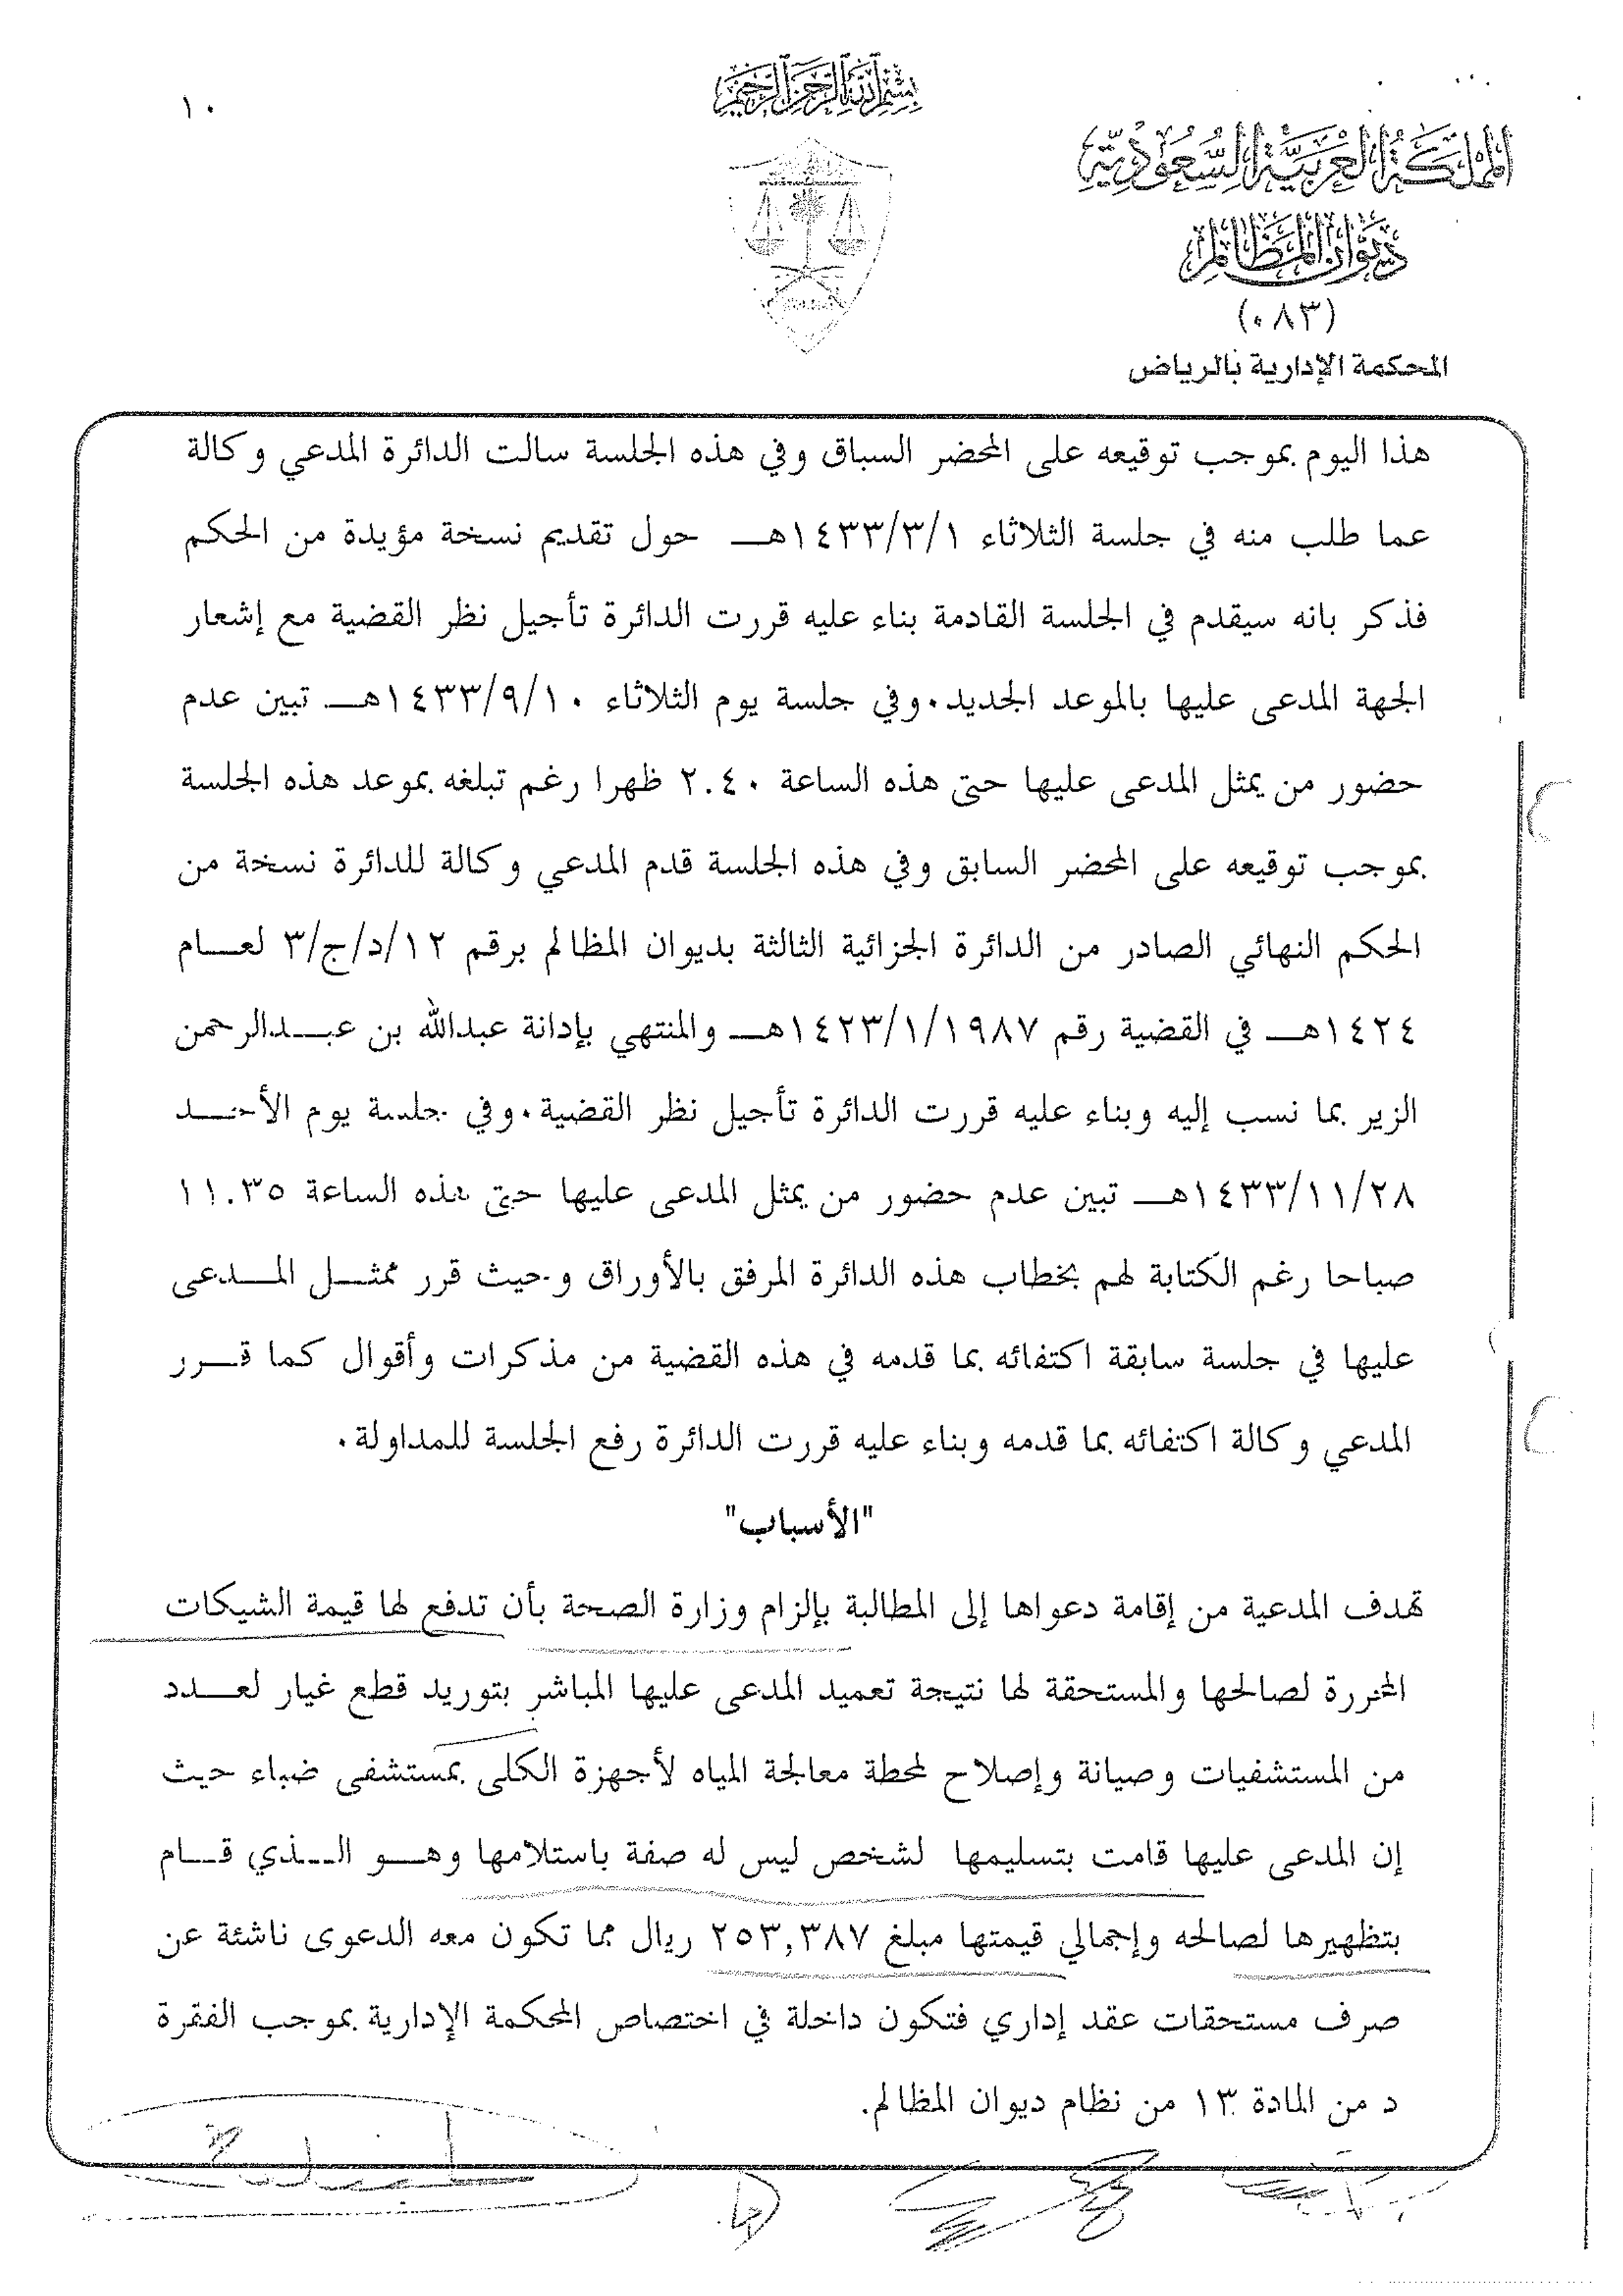 ١٠
بسم الله الرحمن الرحيم
المملكة العربية السعودية
ديوان المظالم
(٠٨٣)
المحكمة الإدارية بالرياض
هذا اليوم بموجب توقيعه على المحضر السباق وفي هذه الجلسة سالت الدائرة المدعي وكالة
عما طلب منه في جلسة الثلاثاء ١٤٣٣/٣/١هـ حول تقديم نسخة مؤيدة من الحكم
فذكر بانه سيقدم في الجلسة القادمة بناء عليه قررت الدائرة تأجيل نظر القضية مع إشعار
الجهة المدعى عليها بالموعد الجديد.وفي جلسة يوم الثلاثاء ١٤٣٣/٩/١٠هـ تبين عدم
حضور من يمثل المدعى عليها حتى هذه الساعة ٢.٤٠ ظهرا رغم تبلغه بموعد هذه الجلسة
بموجب توقيعه على المحضر السابق وفي هذه الجلسة قدم المدعي وكالة للدائرة نسخة من
الحكم النهائي الصادر من الدائرة الجزائية الثالثة بديوان المظالم برقم ١٢/د/ج/٣ لعام
١٤٢٤هـ في القضية رقم ١٤٢٣/١/١٩٨٧هـ والمنتهي بإدانة عبدالله بن عبدالرحمن
الزير بما نسب إليه وبناء عليه قررت الدائرة تأجيل نظر القضية.وفي جلسة يوم الأحد
١٤٣٣/١١/٢٨هـ تبين عدم حضور من يمثل المدعى عليها حتى هذه الساعة ١١.٣٥
صباحا رغم الكتابة لهم بخطاب هذه الدائرة المرفق بالأوراق وحيث قرر ممثل المدعى
عليها في جلسة سابقة اكتفائه بما قدمه في هذه القضية من مذكرات وأقوال كما قرر
المدعي وكالة اكتفائه بما قدمه وبناء عليه قررت الدائرة رفع الجلسة للمداولة.
"الأسباب"
تهدف المدعية من إقامة دعواها إلى المطالبة بإلزام وزارة الصحة بأن تدفع لها قيمة الشيكات
المحررة لصالحها والمستحقة لها نتيجة تعميد المدعى عليها المباشر بتوريد قطع غيار لعدد
من المستشفيات وصيانة وإصلاح لمحطة معالجة المياه لأجهزة الكلى بمستشفى ضباء حيث
إن المدعى عليها قامت بتسليمها لشخص ليس له صفة باستلامها وهو الذي قام
بتظهيرها لصالحه وإجمالي قيمتها مبلغ ٢٥٣,٣٨٧ ريال مما تكون معه الدعوى ناشئة عن
صرف مستحقات عقد إداري فتكون داخلة في اختصاص المحكمة الإدارية بموجب الفقرة
د من المادة ١٣ من نظام ديوان المظالم.